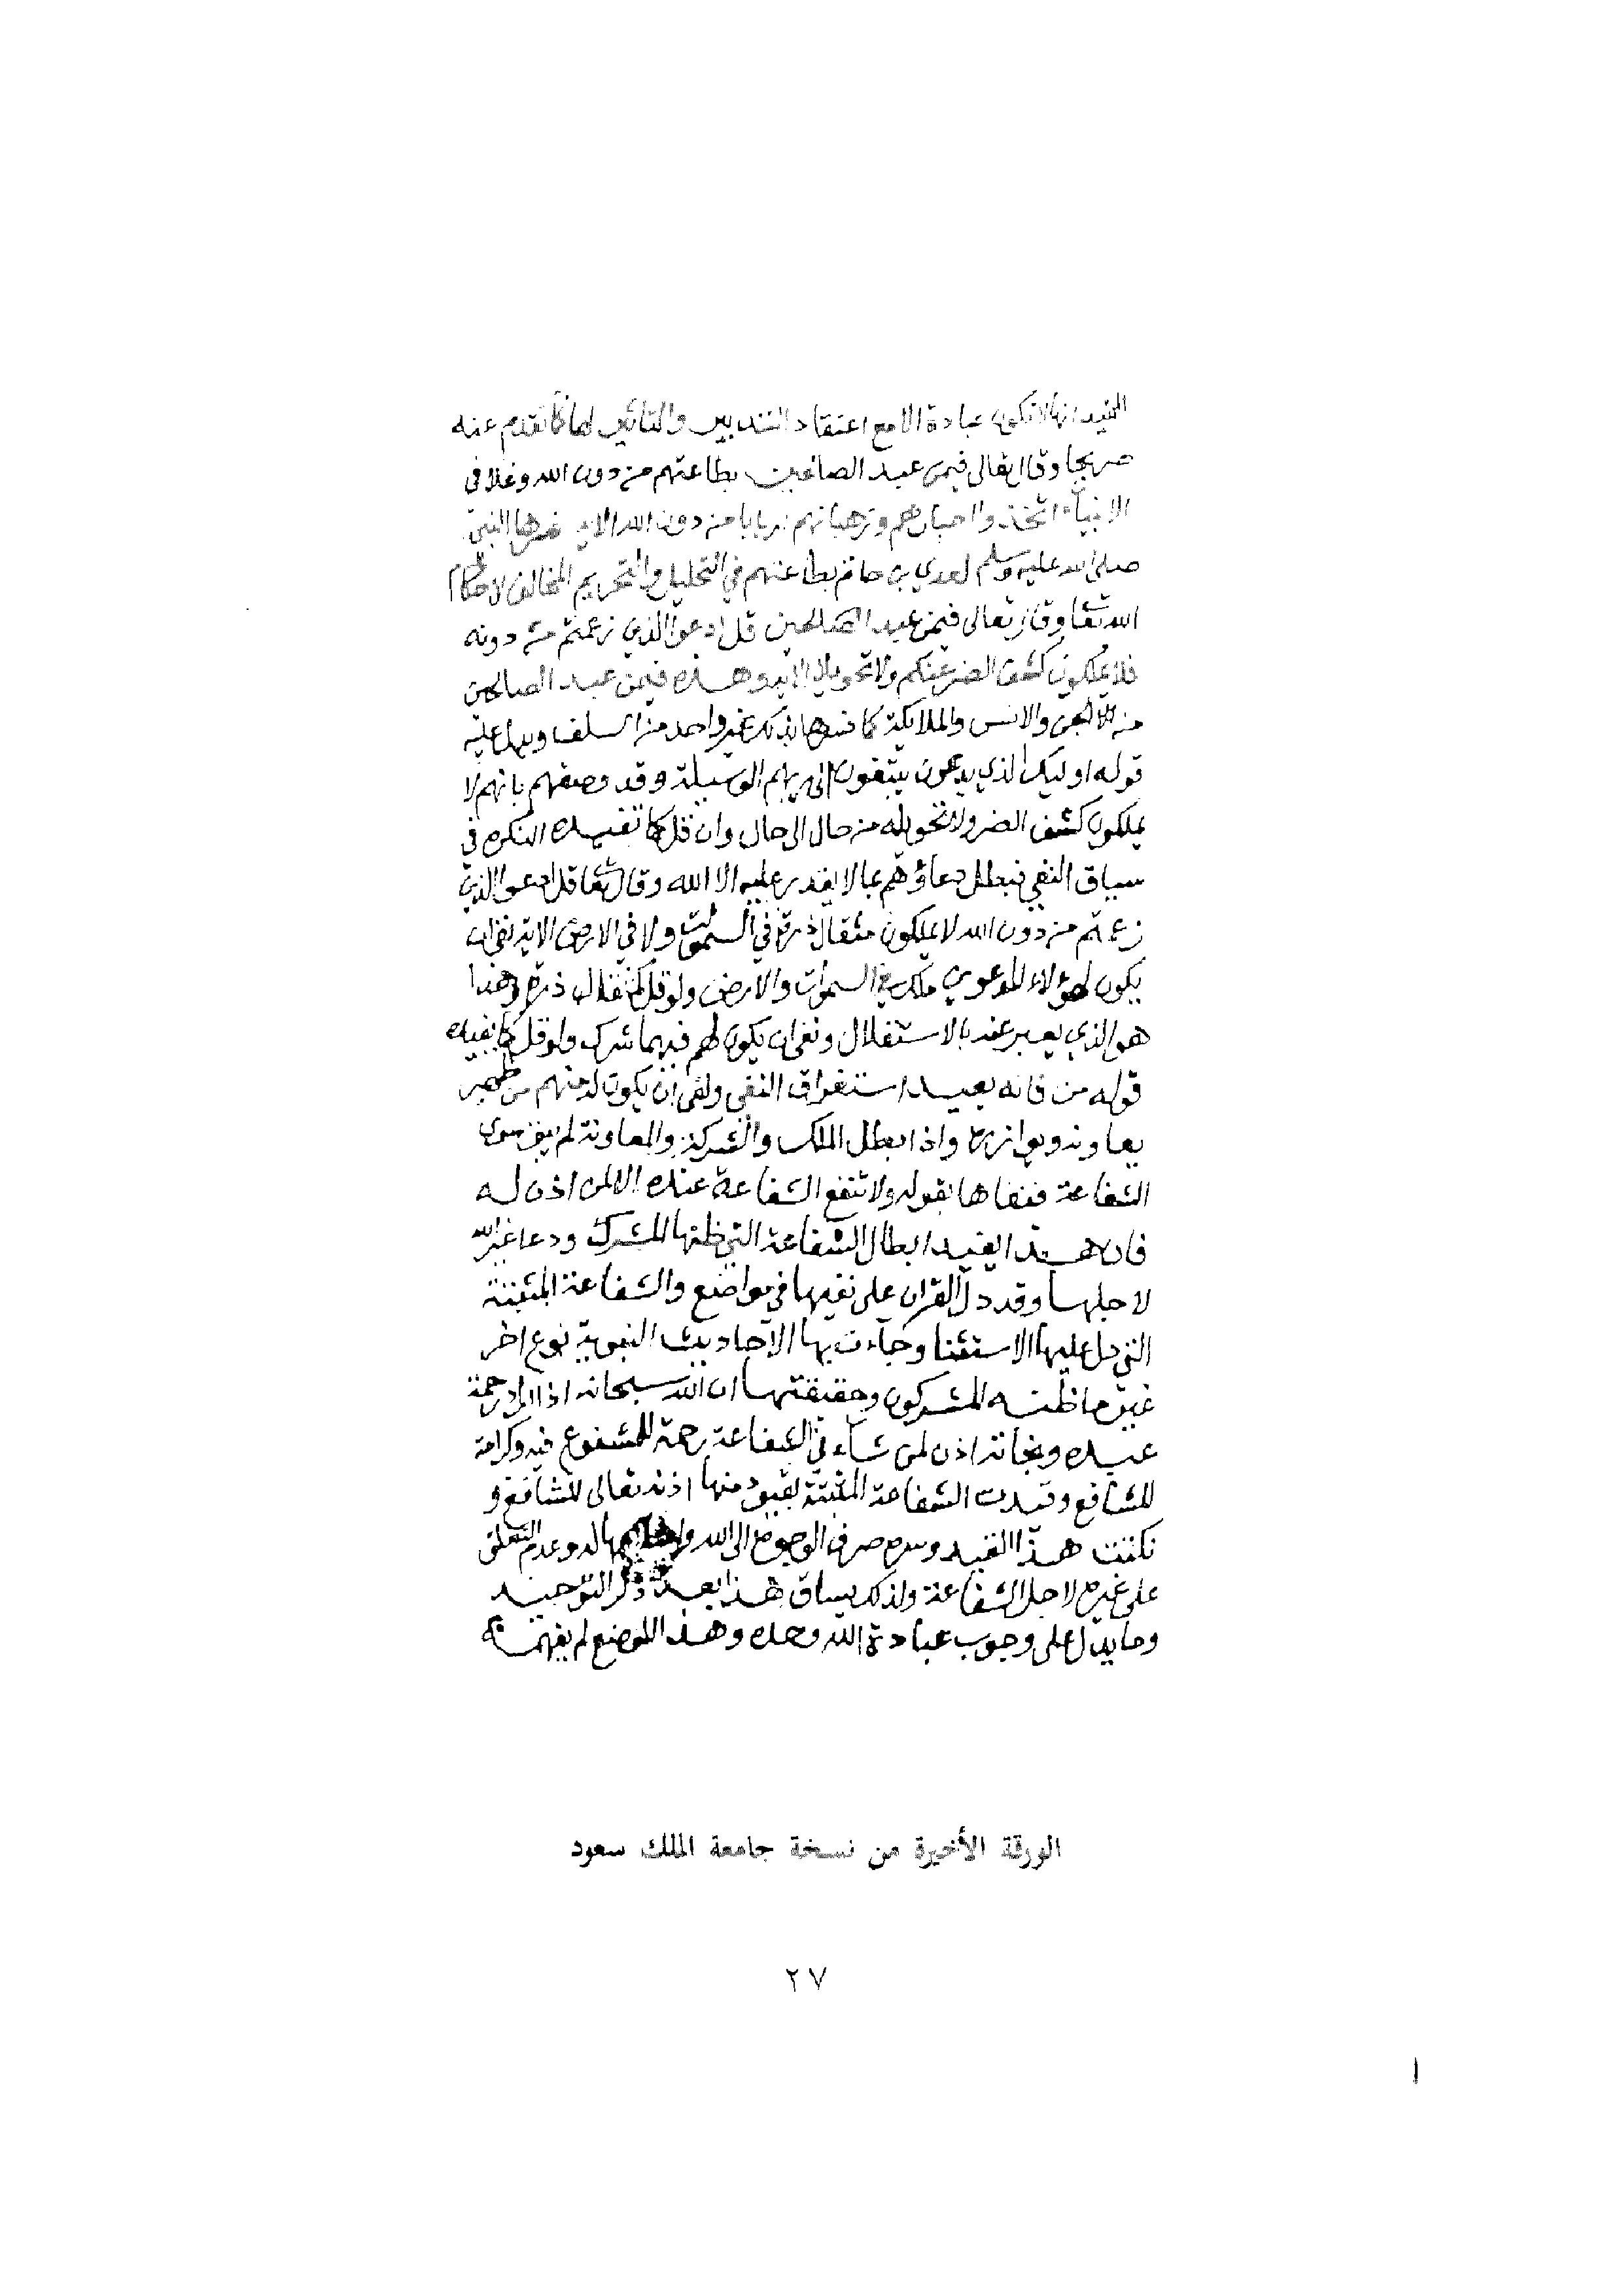 انها لا تكون عبادة الا مع اعتقاد التدبير والتاثير لها كما تقدم عنه
صريحا وقال تعالى فيمن عبد الصالحين بطاعتهم من دون الله وغلا في
الانبياء اتخذوا احبارهم ورهبانهم اربابا من دون الله الاية فسرها النبي
صلى الله عليه وسلم لعدي بن حاتم بطاعتهم في التحليل والتحريم المخالف لاحكام
الله تعالى وقال تعالى فيمن عبد الصالحين قل ادعوا الذين زعمتم من دونه
فلا يملكون كشف الضر عنكم ولا تحويلا الاية وهذه فيمن عبد الصالحين
من الجن والانس والملايكة كما فسرها بذلك غير واحد من السلف ويدل عليه
قوله اوليك الذين يدعون يبتغون الى ربهم الوسيلة وقد وصفهم بانهم لا
يملكون كشف الضر ولا تحويله من حال الى حال وان قل كما تفيده النكره في
سياق النفي فبطل دعاؤهم بما لا يقدر عليه الا الله وقال تعالى قل ادعوا الذين
زعمتم من دون الله لا يملكون مثقال ذرة في السموات ولا في الارض الاية نفى ان
يكون لهؤلاء المدعوين ملك في السموات والارض ولو قل كمثقال ذره وهذا
هو الذي يعبر عنه بالاستقلال ونفى ان يكون لهم فيهما شرك ولو قل كما يفيده
قوله من فانه يفيد استغراق النفي ونفى ان يكون له منهم من ظهير
يعاونه ويوازره واذا بطل الملك والشركة والمعاونة لم يبق سوى
الشفاعة فنفاها بقوله ولا تنفع الشفاعة عنده الا لمن اذن له
فان هذا القيد ابطال الشفاعة التي ظنها المشرك ودعا غير الله
لاجلها وقد دل القران على نفيها في مواضع والشفاعة المثبتة
التي دل عليها الاستثنا وجاءت بها الاحاديث النبوية نوع اخر
غير ما ظنه المشركون وحقيقتها ان الله سبحانه اذا اراد رحمة
عبده ونجاته اذن لمن شاء في الشفاعة رحمة للمشفوع فيه وكرامة
للشافع وقيدت الشفاعة المثبتة بقيود منها اذنه تعالى للشافع و
نكتت هذا القيد وسره صرف الوجوه الى الله له وعدم التعلق
على غيره لاجل الشفاعة ولذلك يساق هذا بعد ذكر التوحيد
وما يدل على وجوب عبادة الله وحده وهذا الموضع لم يفهمه
الورقة الأخيرة من نسخة جامعة الملك سعود
٢٧